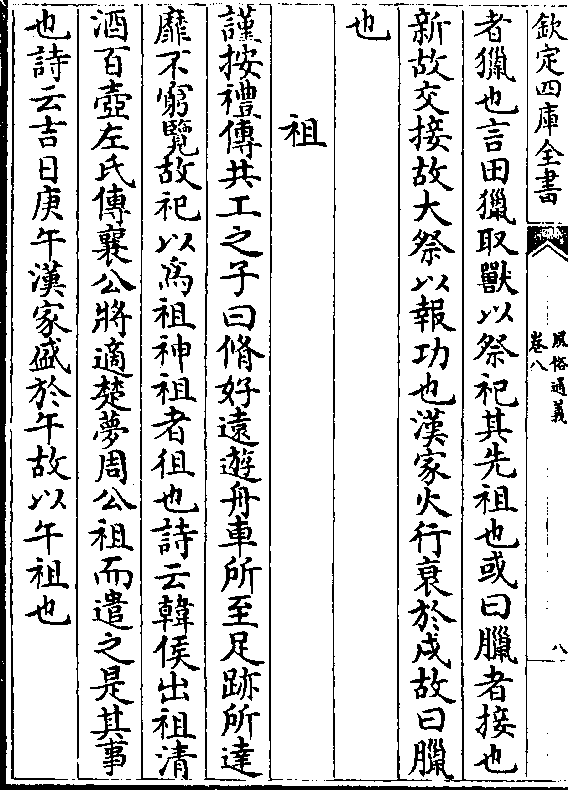 欽定四庫全書
風俗通義
卷八
八
者獵也言田獵取獸以祭祀其先祖也或曰臘者接也
新故交接故大祭以報功也漢家火行衰於戌故曰臘
也
祖
謹按禮傳共工之子曰脩好遠遊舟車所至足跡所達
靡不窮覽故祀以為祖神祖者徂也詩云韓侯出祖清
酒百壺左氏傳襄公將適楚夢周公祖而遣之是其事
也詩云吉日庚午漢家盛於午故以午祖也